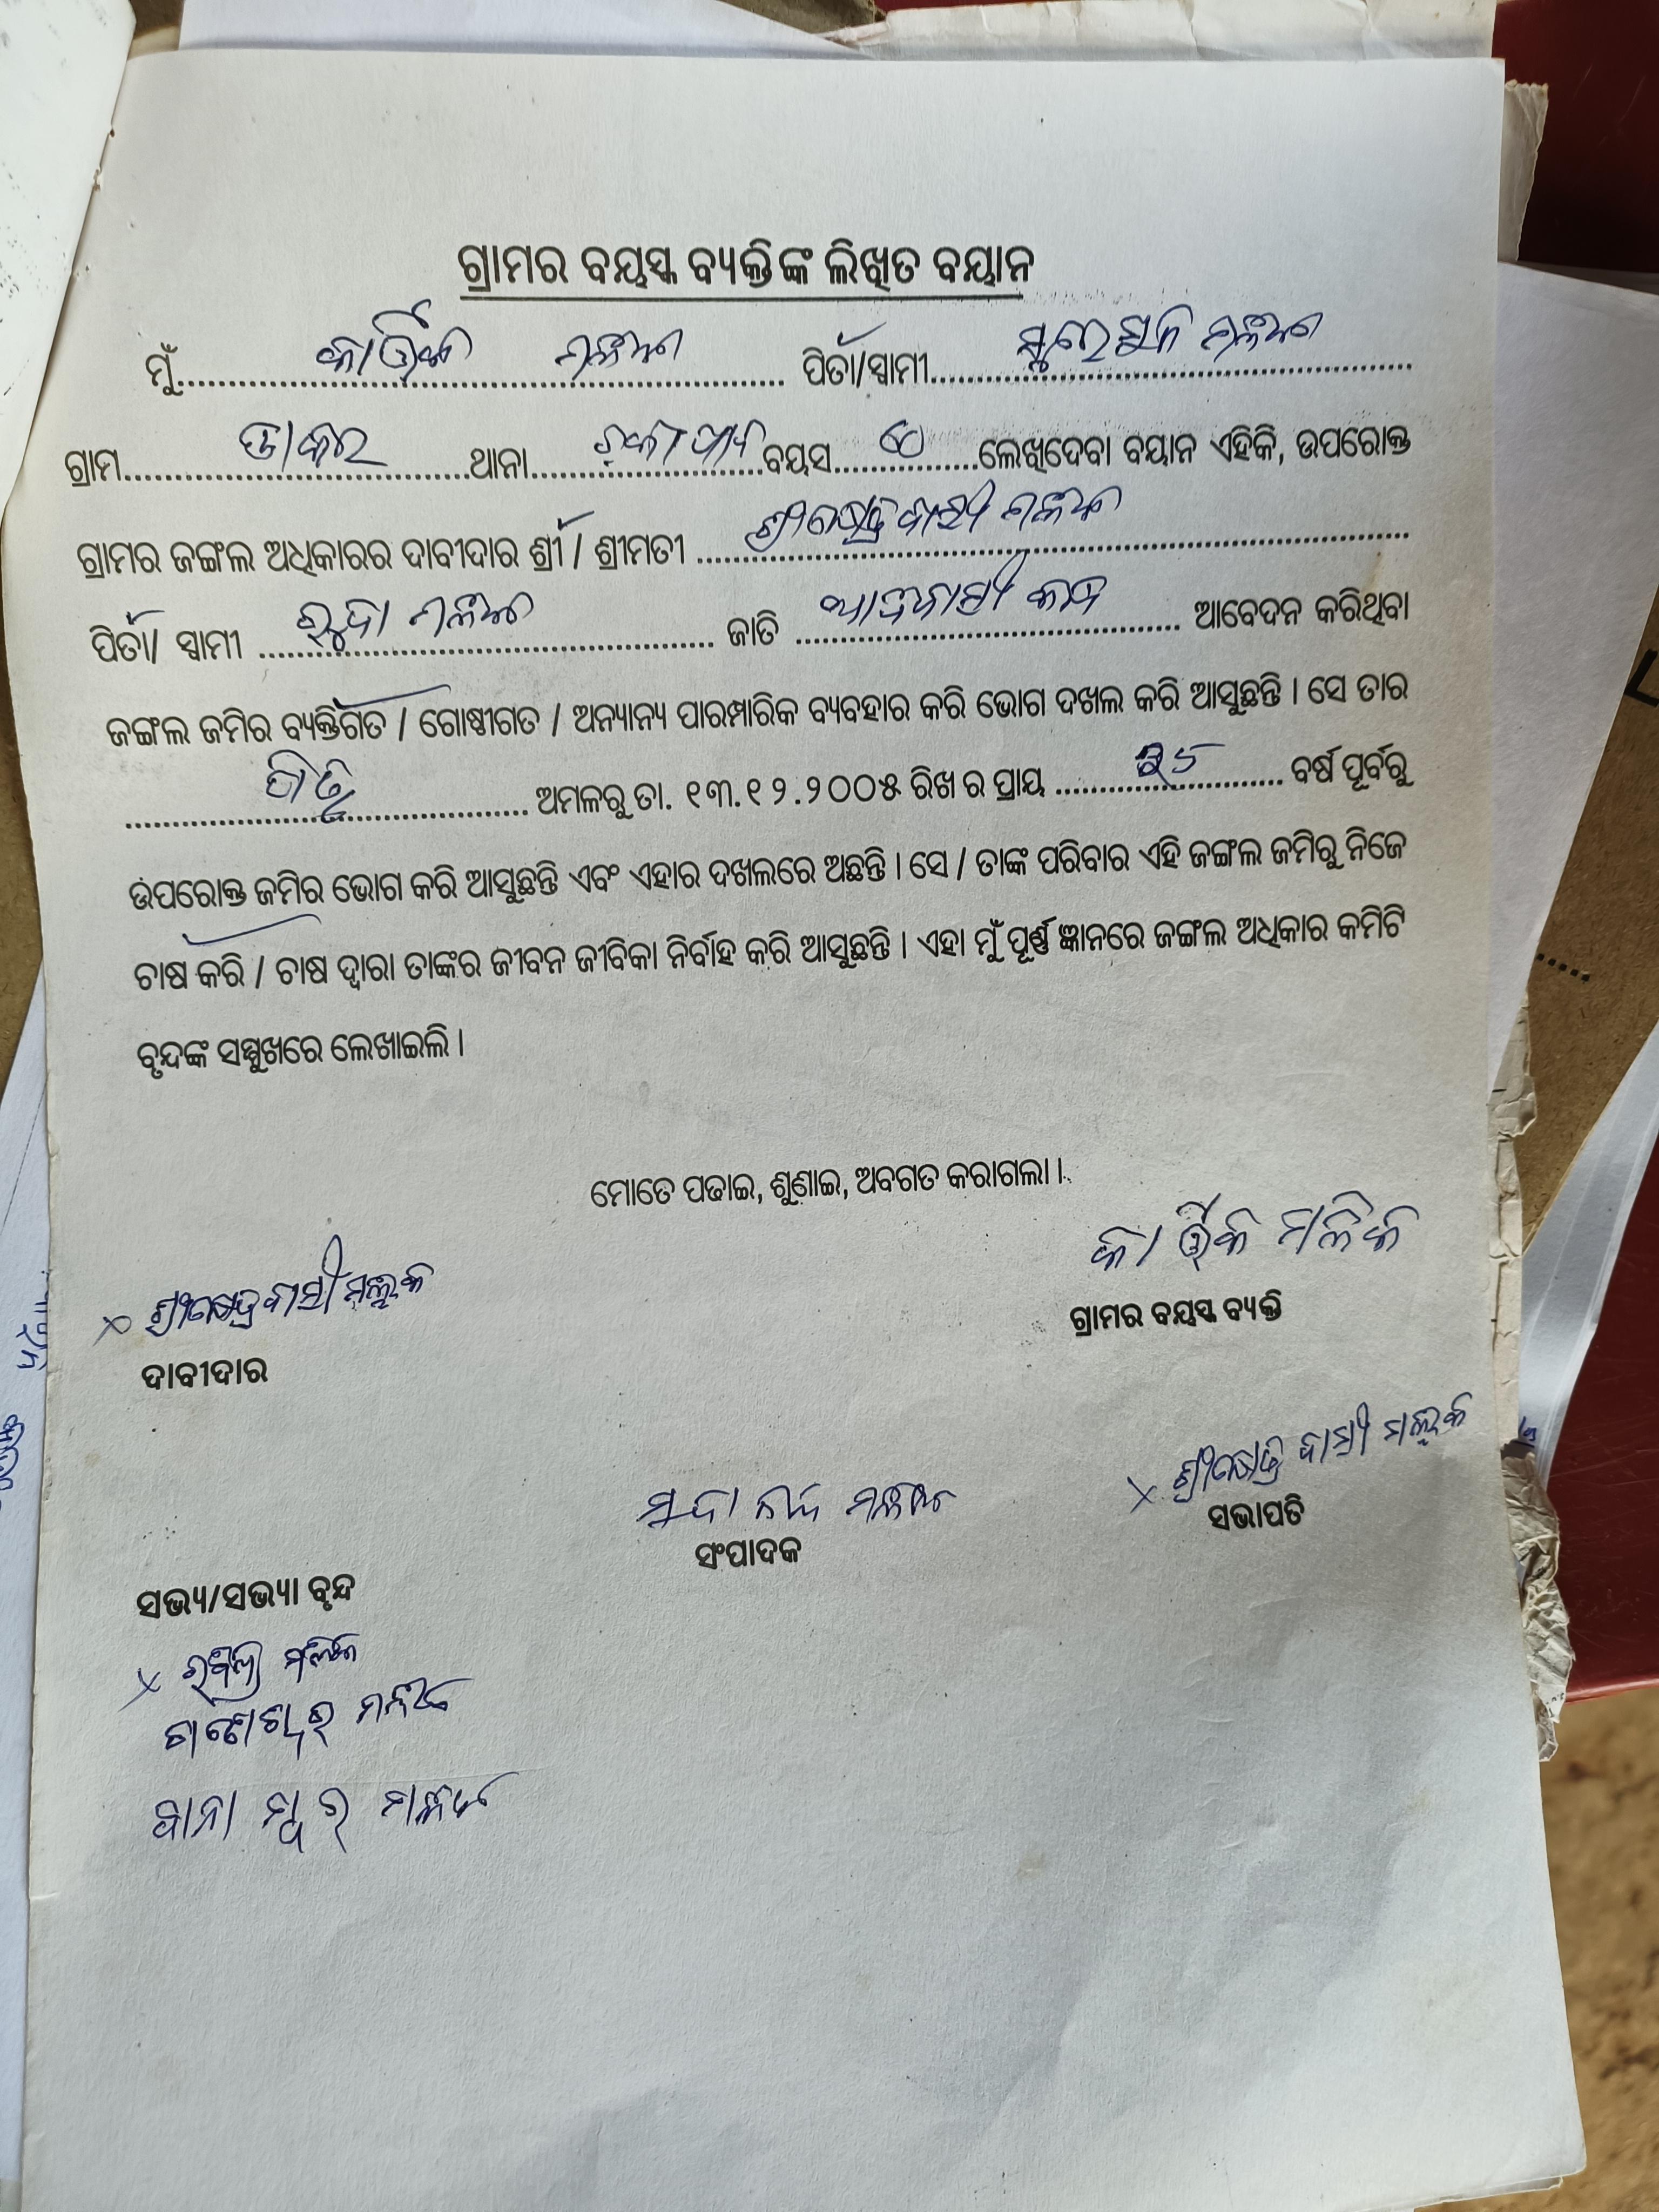 ଗ୍ରାମର ବୟସ୍କ ବ୍ୟକ୍ତିଙ୍କ ଲିଖିତ ବୟାନ
ମୁଁ.......... କାର୍ତ୍ତିକ ମଲିକ .......... ପିତା/ସ୍ୱାମୀ..........
ଗ୍ରାମ..........ଥାନା..........ବୟସ.... ୬୦ ....ଲେଖିଦେବା ବୟାନ ଏହିକି, ଉପରୋକ୍ତ
ଗ୍ରାମର ଜଙ୍ଗଲ ଅଧିକାରର ଦାବୀଦାର ଶ୍ରୀ / ଶ୍ରୀମତୀ .......... ଶ୍ରୀକ୍ଷେତ୍ରବାସୀ ମଲିକ
ପିତା/ ସ୍ୱାମୀ .......... ଜାତି .......... ଆଦିବାସୀ କନ୍ଧ .......... ଆବେଦନ କରିଥିବା
ଜଙ୍ଗଲ ଜମିର ବ୍ୟକ୍ତିଗତ / ଗୋଷ୍ଠୀଗତ / ଅନ୍ୟାନ୍ୟ ପାରମ୍ପାରିକ ବ୍ୟବହାର କରି ଭୋଗ ଦଖଲ କରି ଆସୁଛନ୍ତି । ସେ ତାର
.......... ଅମଳରୁ ତା. ୧୩.୧୨.୨୦୦୫ ରିଖ ର ପ୍ରାୟ .......... ବର୍ଷ ପୂର୍ବରୁ
ଉପରୋକ୍ତ ଜମିର ଭୋଗ କରି ଆସୁଛନ୍ତି ଏବଂ ଏହାର ଦଖଲରେ ଅଛନ୍ତି । ସେ / ତାଙ୍କ ପରିବାର ଏହି ଜଙ୍ଗଲ ଜମିରୁ ନିଜେ
ଚାଷ କରି / ଚାଷ ଦ୍ୱାରା ତାଙ୍କର ଜୀବନ ଜୀବିକା ନିର୍ବାହ କରି ଆସୁଛନ୍ତି । ଏହା ମୁଁ ପୂର୍ଣ୍ଣ ଜ୍ଞାନରେ ଜଙ୍ଗଲ ଅଧିକାର କମିଟି
ବୃନ୍ଦଙ୍କ ସମ୍ମୁଖରେ ଲେଖାଇଲି ।
ମୋତେ ପଢାଇ, ଶୁଣାଇ, ଅବଗତ କରାଗଲା ।
କାର୍ତ୍ତିକ ମଲିକ
ଗ୍ରାମର ବୟସ୍କ ବ୍ୟକ୍ତି
x ଶ୍ରୀକ୍ଷେତ୍ରବାସୀ ମଲ୍ଲିକ
ଦାବୀଦାର
x ଶ୍ରୀକ୍ଷେତ୍ର ବାସୀ ମଲ୍ଲିକ
ସଭାପତି
ସଂପାଦକ
ସଭ୍ୟ/ସଭ୍ୟା ବୃନ୍ଦ